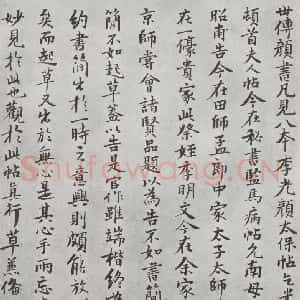 世傳顏書凡見八本李光顏太保帖乞米
頓首夫人帖今在秘書監馬病帖允南母
昭甫告今在田師孟郎中家太子太師
在一億貴家此祭姪季明文今在余家
京師嘗會諸賢品題以為告不如書簡
簡不如起草蓋以告是官作雖端楷終為
約書簡出於一時之意興則頗能放
矣而起草又出於無心是其心手兩忘
妙見於此也觀於此帖真行草兼備
Shufawang.CN